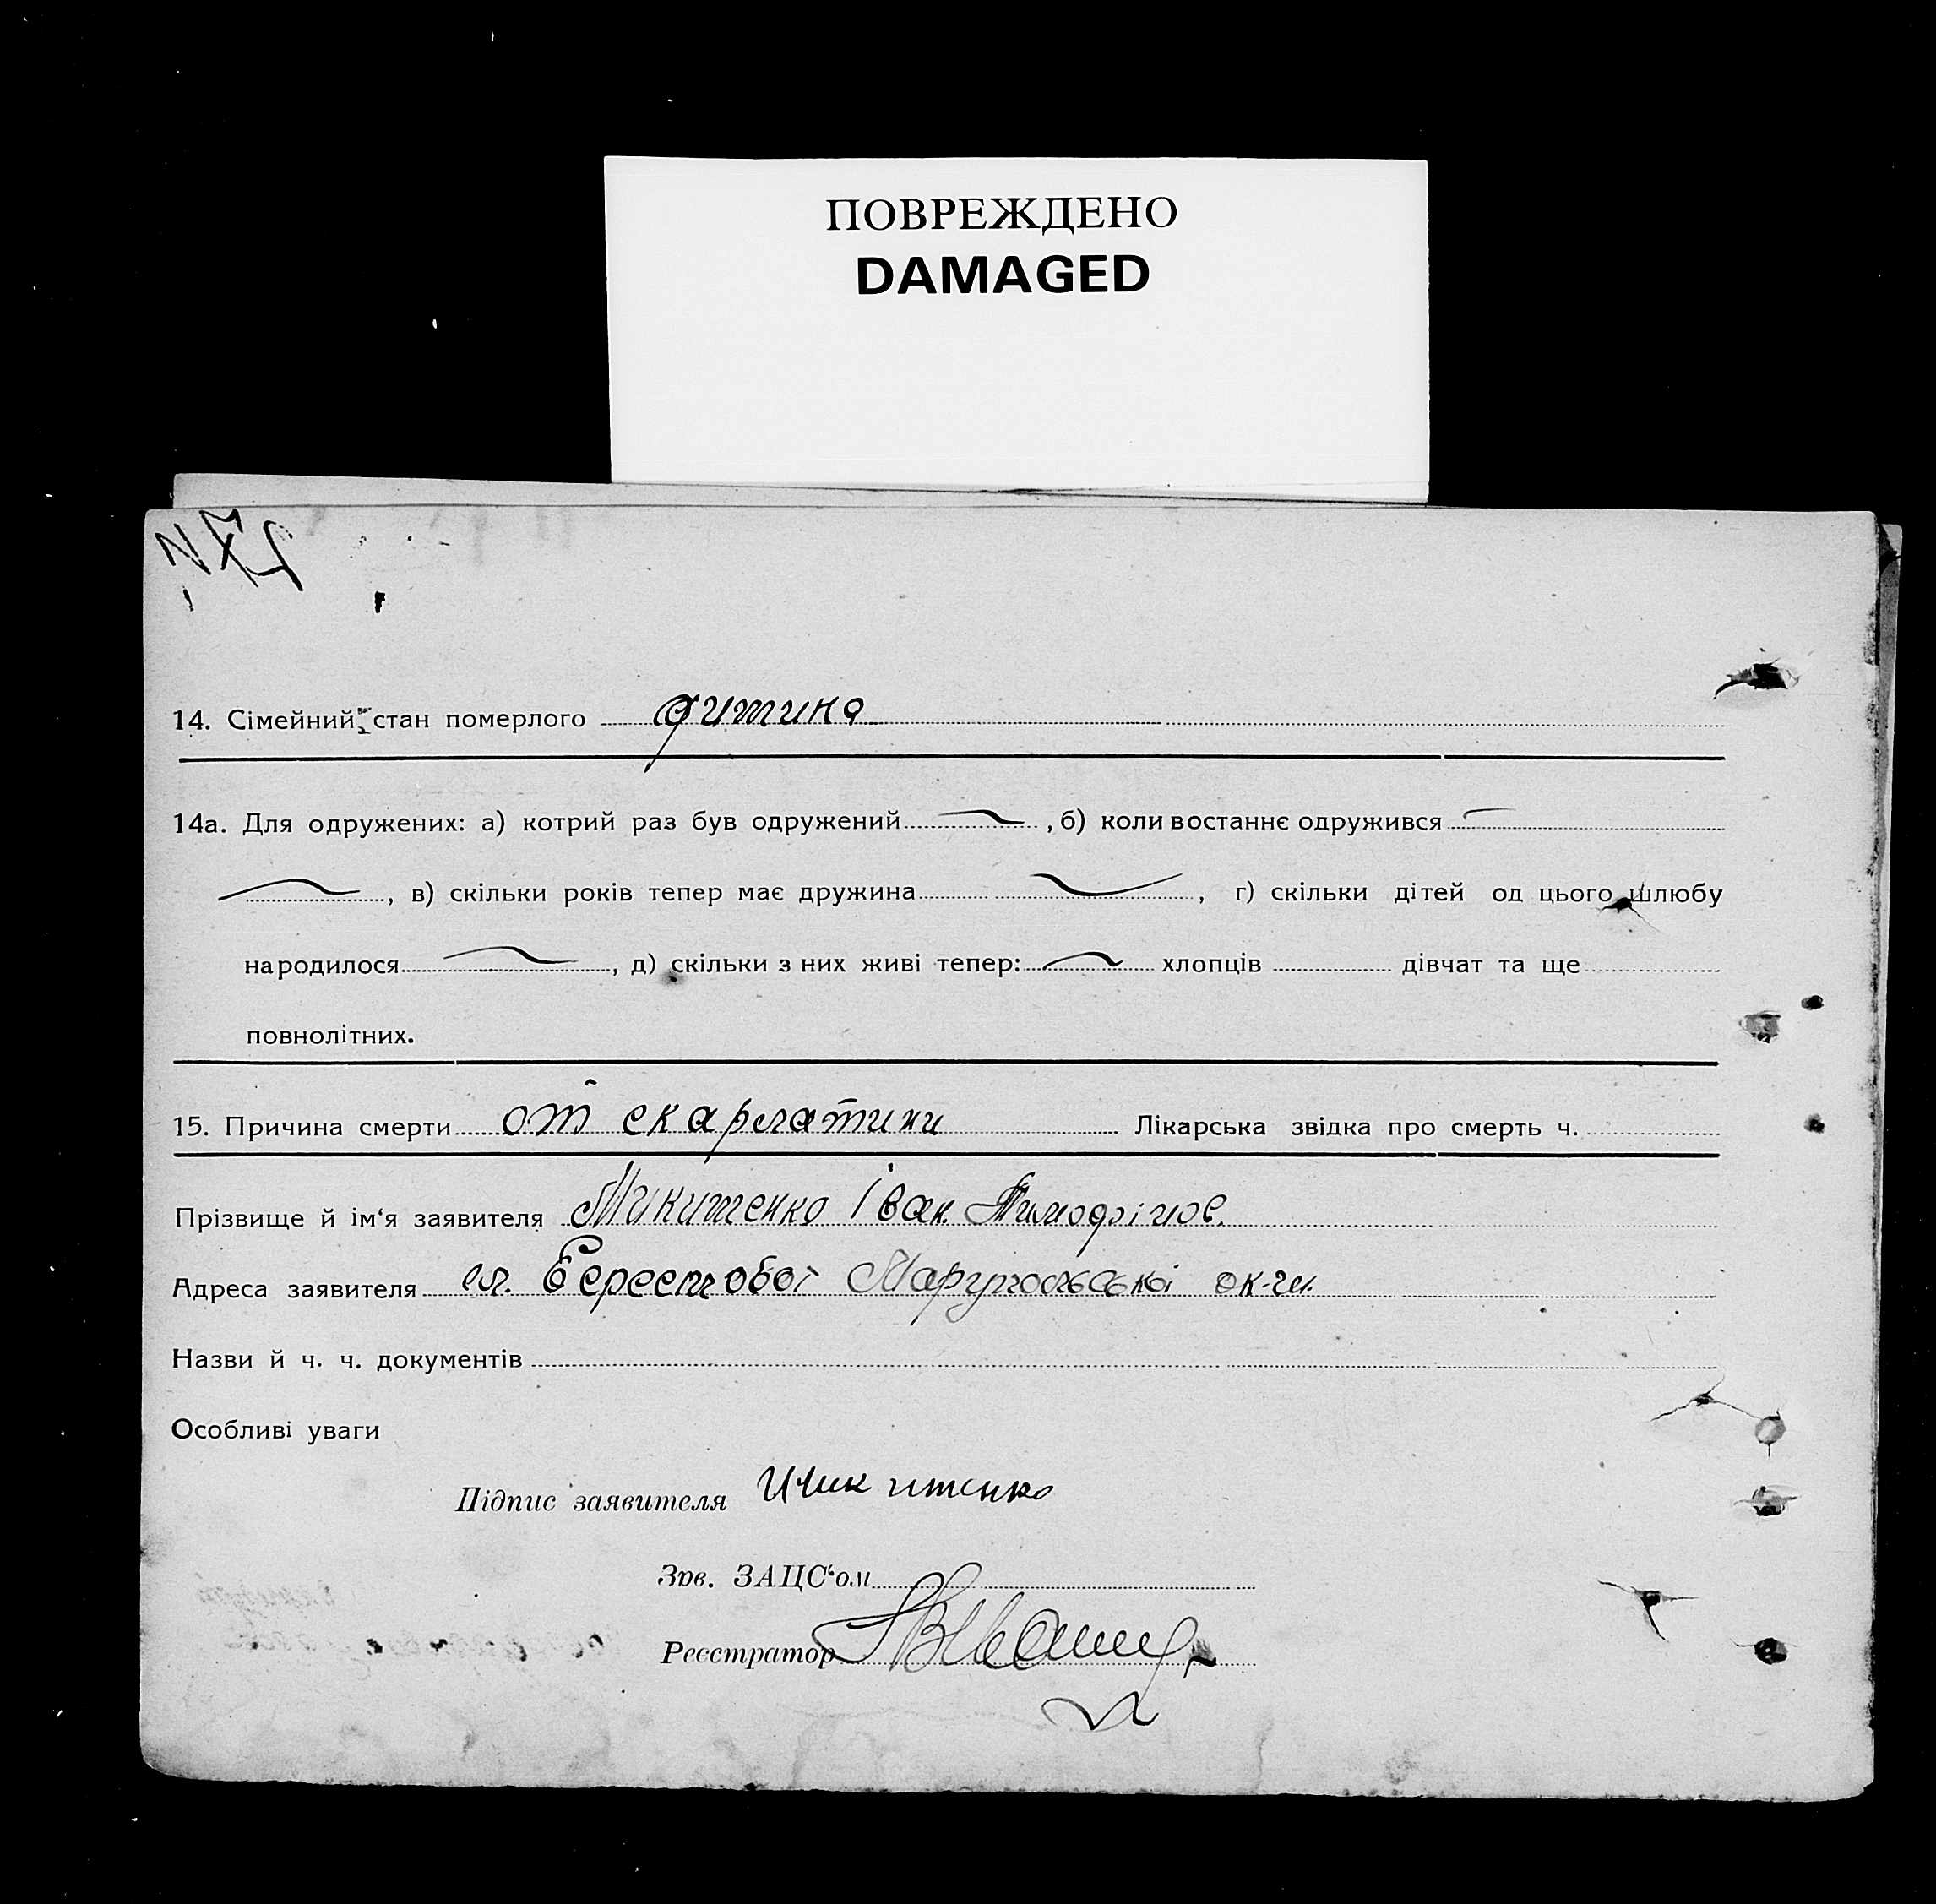 ПОВРЕЖДЕНО
DAMAGED
14. Сімейний стан померлого дитина
14а. Для одружених: а) котрий раз був одружений , б) коли востаннє одружився
, в) скільки років тепер має дружина , г) скільки дітей од цього шлюбу
народилося , д) скільки з них живі тепер: хлопців дівчат та ще
повнолітних.
15. Причина смерти от скарлатини Лікарська звідка про смерть ч.
Прізвище й ім‘я заявителя Микитенко Іван Тимофійов.
Адреса заявителя с. Берестової Маріупольської ок-ги.
Назви й ч. ч. документів
Особливі уваги
Підпис заявителя Микитенко
Зав. ЗАЦС‘ом
Реєстратор